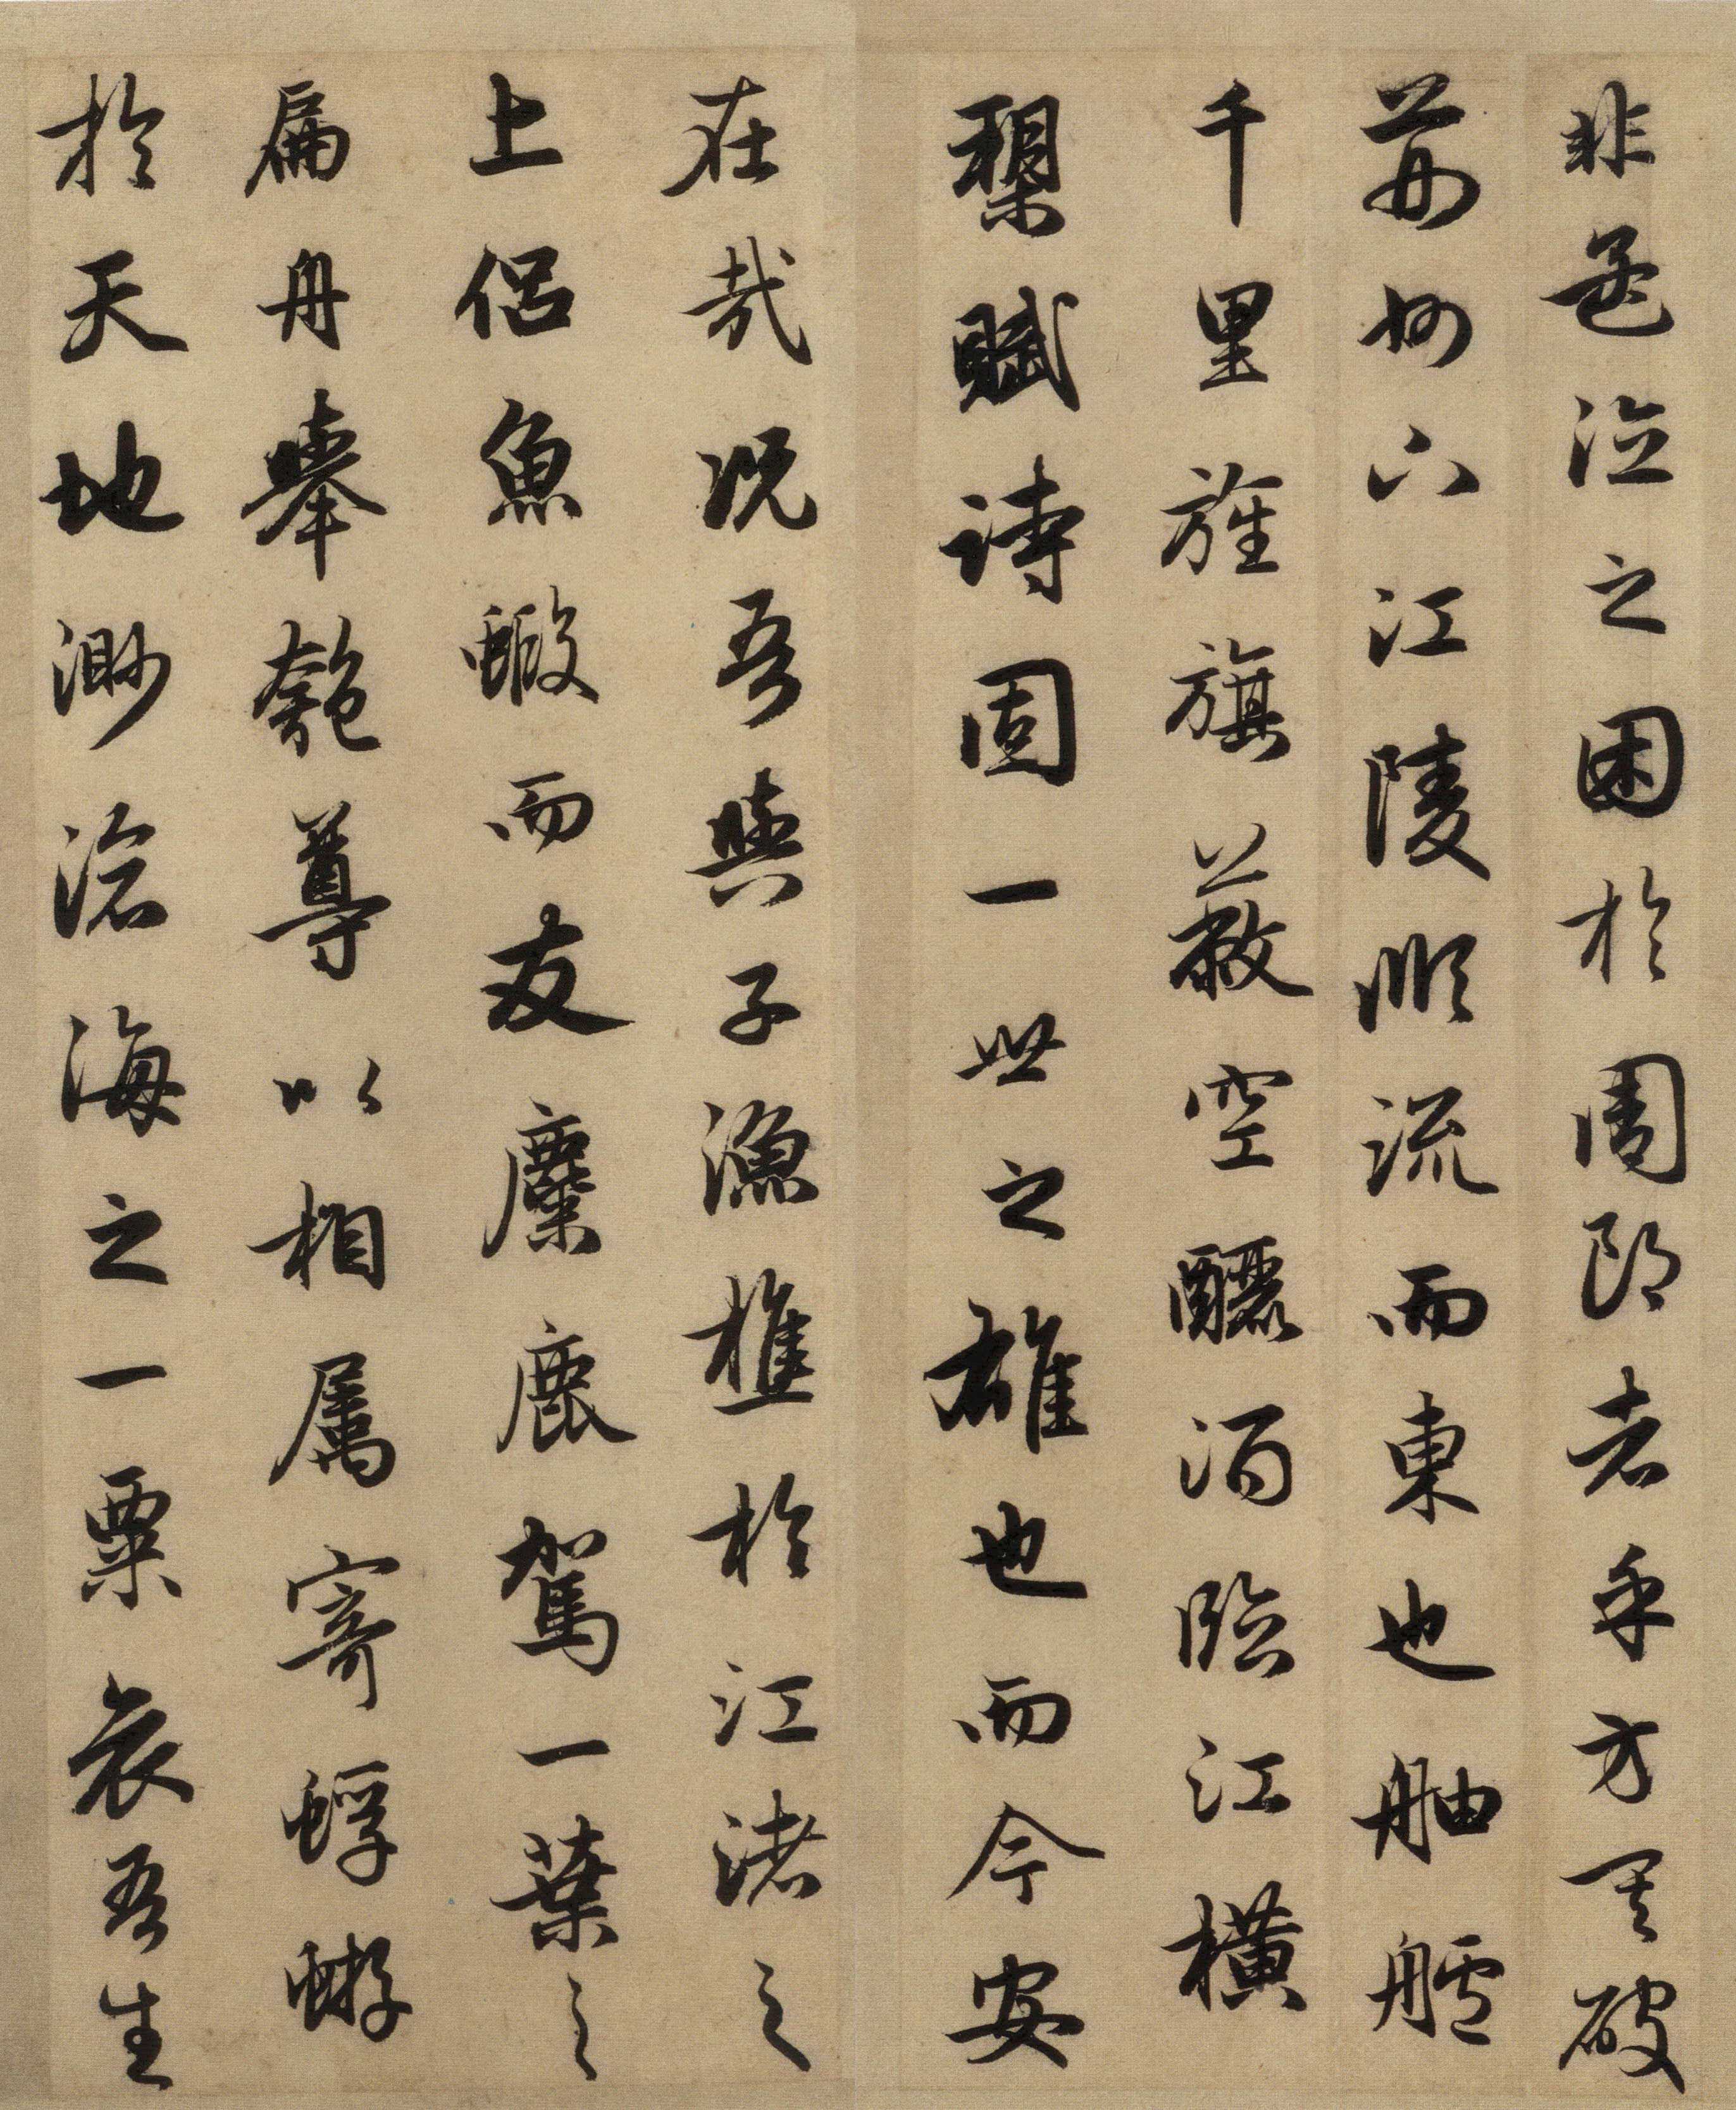 非孟德之困於周郎者乎方其破
荊州下江陵順流而東也舳艫
千里旌旗蔽空釃酒臨江橫
槊賦詩固一世之雄也而今安
在哉况吾與子漁樵於江渚之
上侶魚蝦而友麋鹿駕一葉之
扁舟舉匏尊以相屬寄蜉蝣
於天地渺滄海之一粟哀吾生